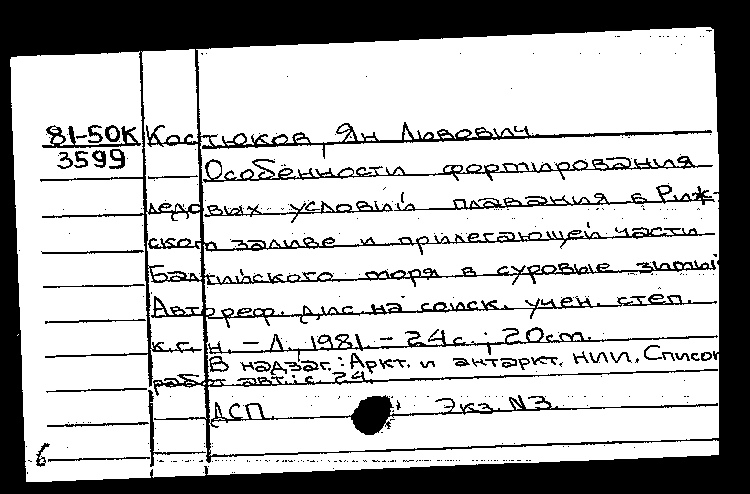 81-50К Костюков, Ян Львович.
3599
Особенности формирования
ледовых условий плавания в Риж-
ском заливе и прилегающей части
Балтийского моря в суровые зимы:
Автореф. дис. на соиск. учен. степ.
к.г.н. – Л., 1981. – 24с.; 20см.
В надзаг.: Аркт. и антаркт. НИИ. Список
работ авт.: с. 24.
ДСП. Экз. N3.
6